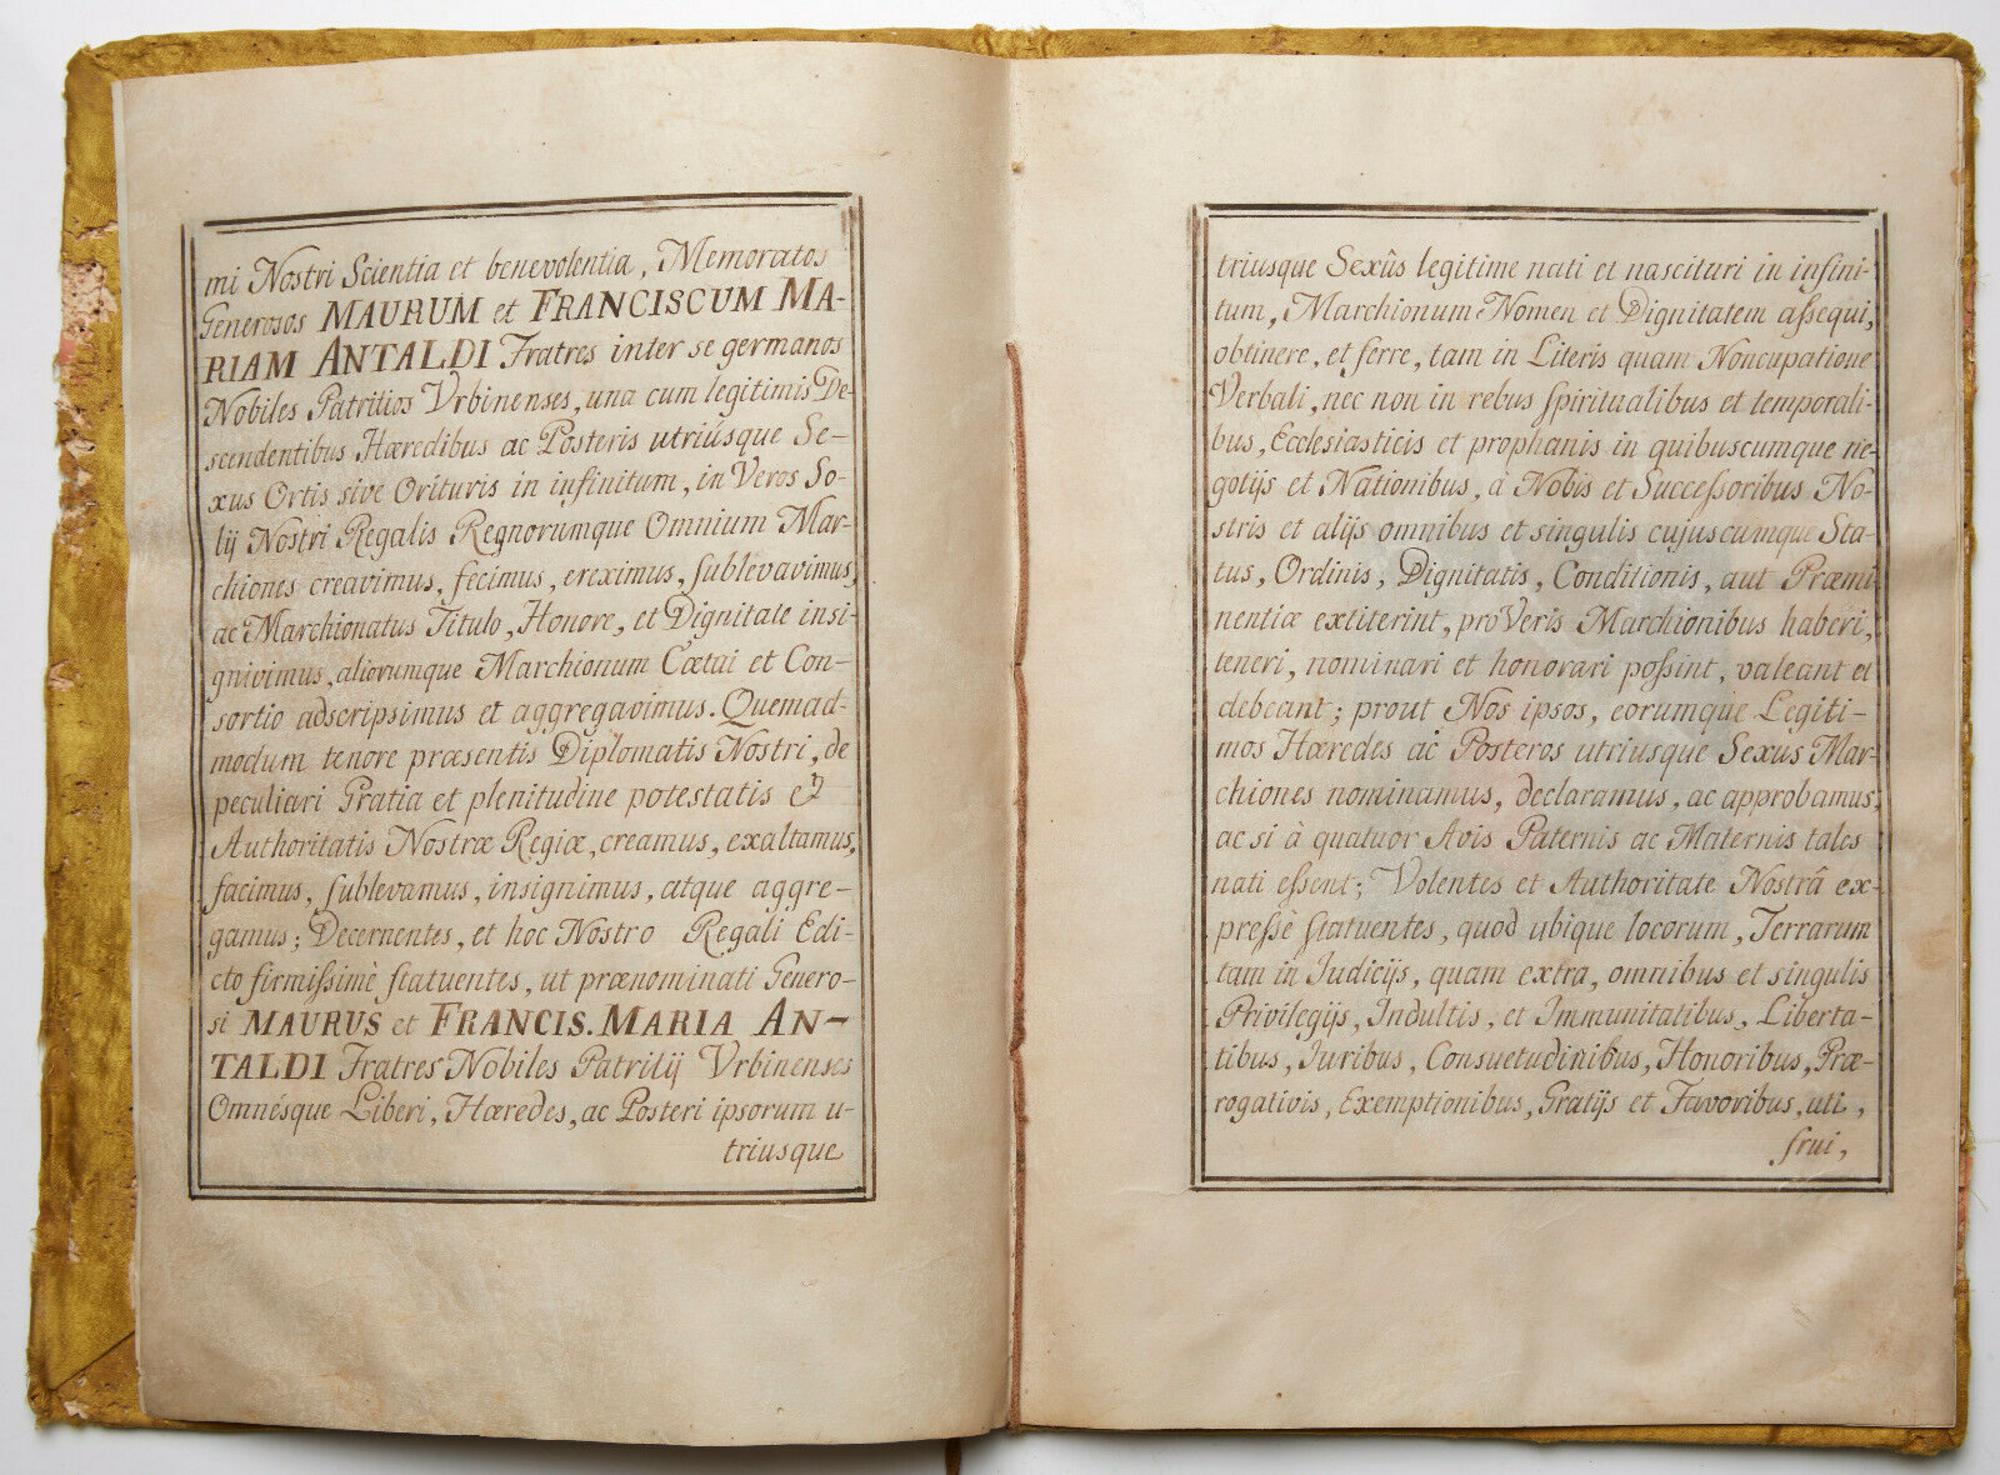 mi Nostri Scientia et benevolentia, Memoratos
Generosos MAURUM et FRANCISCUM MA-
RIAM ANTALDI Fratres inter se germanos
Nobiles Patritios Vrbinenses, una cum legitimis De-
scendentibus Hæredibus ac Posteris utriúsque Se-
xus Ortis sive Orituris in infinitum, in Veros So-
lij Nostri Regalis Regnorumque Omnium Mar-
chiones creavimus, fecimus, ereximus, sublevavimus,
ac Marchionatus Titulo, Honore, et Dignitate insi-
gnivimus, aliorumque Marchionum Cœtui et Con-
sortio adscripsimus et aggregavimus. Quemad-
modum tenore præsentis Diplomatis Nostri, de
peculiari Gratia et plenitudine potestatis et
Authoritatis Nostræ Regiæ, creamus, exaltamus,
facimus, sublevamus, insignimus, atque aggre-
gamus; Decernentes, et hoc Nostro Regali Edi-
cto firmissimè statuentes, ut prænominati Genero-
si MAURUS et FRANCIS. MARIA AN-
TALDI Fratres Nobiles Patritij Vrbinenses
Omnésque Liberi, Hæredes, ac Posteri ipsorum u-
triusque
triusque Sexûs legitime nati et nascituri in infini-
tum, Marchionum Nomen et Dignitatem assequi,
obtinere, et ferre, tam in Literis quam Noncupatione
Verbali, nec non in rebus spiritualibus et temporali-
bus, Ecclesiasticis et prophanis in quibuscumque ne-
gotijs et Nationibus, à Nobis et Successoribus No-
stris et alijs omnibus et singulis cujuscumque Sta-
tus, Ordinis, Dignitatis, Conditionis, aut Præmi
nentiæ extiterint, pro Veris Marchionibus haberi,
teneri, nominari et honorari possint, valeant et
debeant; prout Nos ipsos, eorumque Legiti-
mos Hæredes ac Posteros utriusque Sexus Mar-
chiones nominamus, declaramus, ac approbamus,
ac si à quatuor Avis Paternis ac Maternis tales
nati essent; Volentes et Authoritate Nostrâ ex-
pressè statuentes, quod ubique locorum, Terrarum
tam in Judicijs, quam extra, omnibus et singulis
Privilegijs, Indultis, et Immunitatibus, Liberta-
tibus, Juribus, Consuetudinibus, Honoribus, Præ-
rogativis, Exemptionibus, Gratijs et Favoribus, uti,
frui,